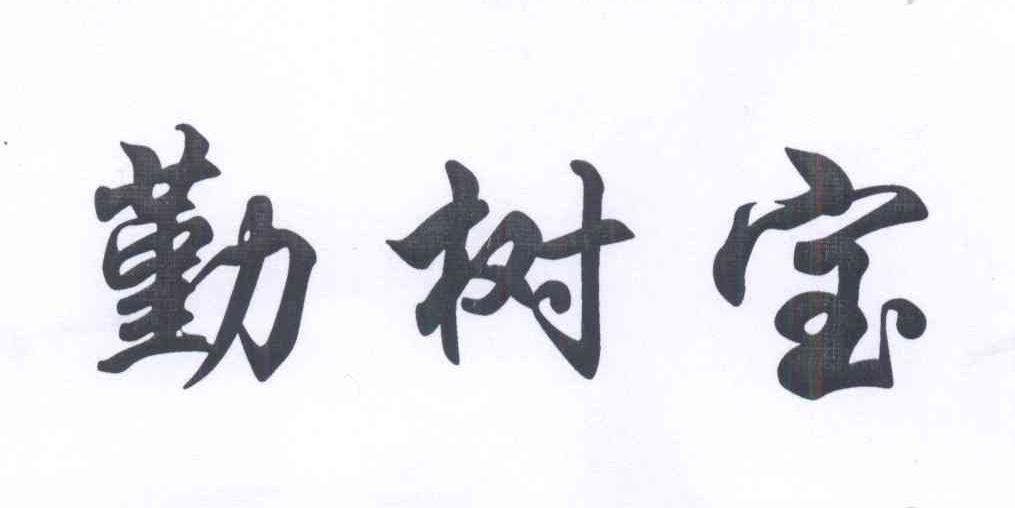 勤树宝